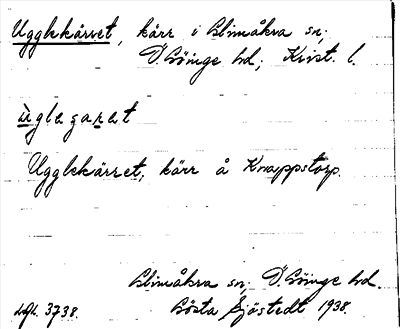 Ugglekärret, kärr i Glimåkra sn;
Ö. Göinge hd; Krist. l.
ùglegaret
Ugglekärret, kärr å Knappstorp.
Glimåkra sn; Ö. Göinge hd.
Gösta Sjöstedt 1938.
3738.